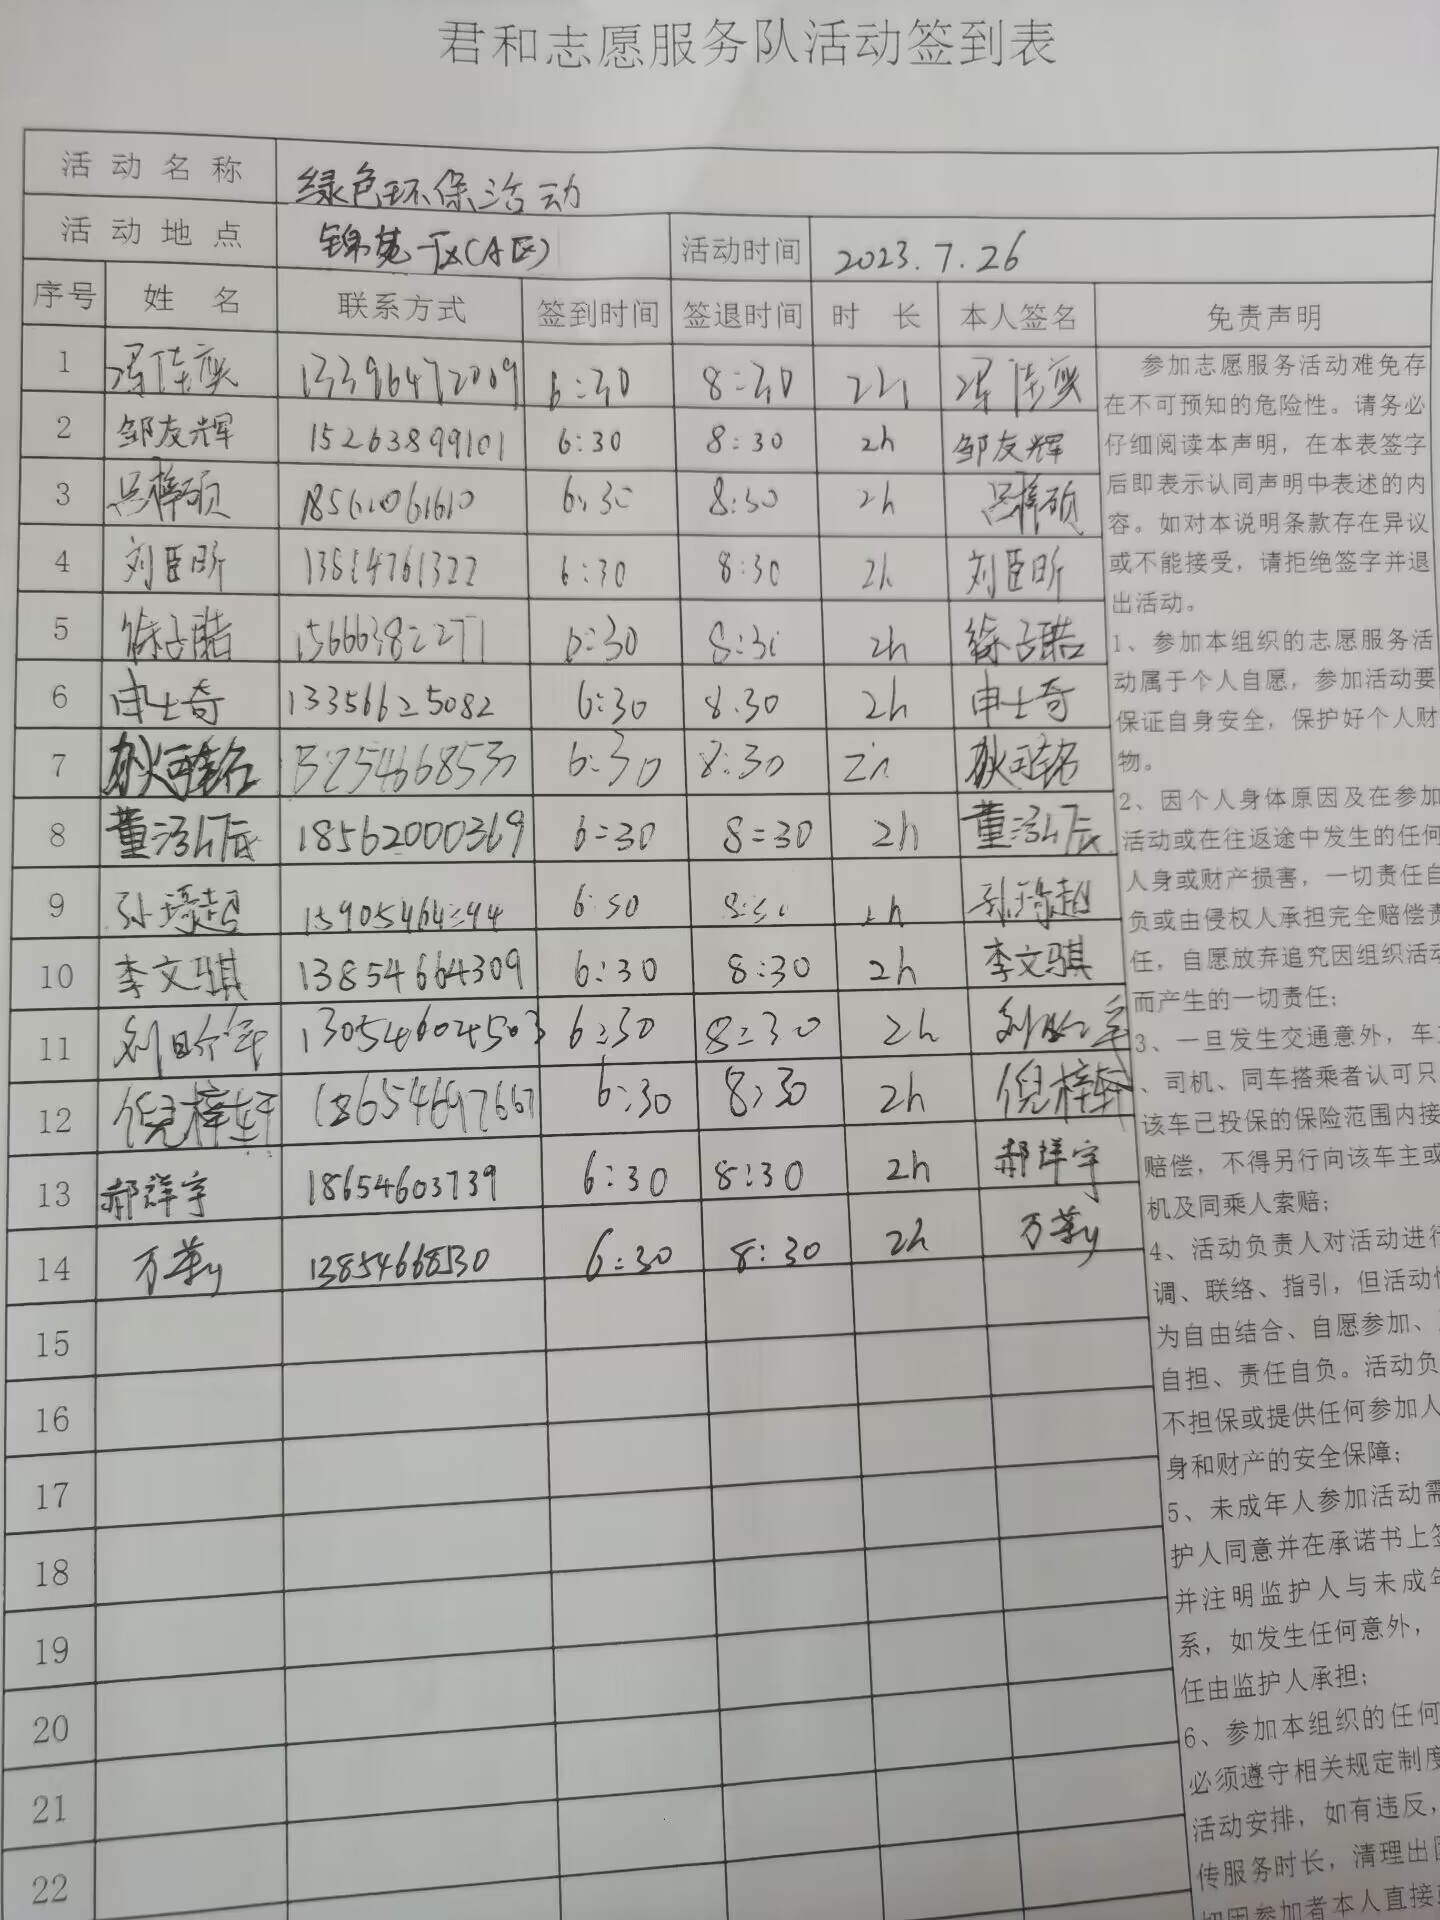 君和志愿服务队活动签到表
活动名称 绿色环保活动
活动地点 锦苑一区(A区) 活动时间 2023.7.26
序号 姓名 联系方式 签到时间 签退时间 时长 本人签名 免责声明
1 13396472009 6:30 8:30 2h
2 邹友辉 15263899101 6:30 8:30 2h 邹友辉
3 吕梓硕 18561061610 6:30 8:30 2h 吕梓硕
4 刘臣昕 6:30 8:30 2h 刘臣昕
5 徐子皓 15666382271 6:30 8:30 2h 徐子皓
6 申士奇 13356625082 6:30 8.30 2h 申士奇
7 6:30 8:30 2h
8 董泓辰 18562000369 6:30 8:30 2h 董泓辰
9 孙琦超 6:30 8:30 2h 孙琦超
10 李文骐 13854664309 6:30 8:30 2h 李文骐
11 13054604503 6:30 8:30 2h
12 倪梓轩 18654697667 6:30 8:30 2h 倪梓轩
13 郝祥宇 18654603739 6:30 8:30 2h 郝祥宇
14 13854668530 6:30 8:30 2h
15
16
17
18
19
20
21
22
参加志愿服务活动难免存
在不可预知的危险性。请务必
仔细阅读本声明，在本表签字
后即表示认同声明中表述的内
容。如对本说明条款存在异议
或不能接受，请拒绝签字并退
出活动。
1、参加本组织的志愿服务活
动属于个人自愿，参加活动要
保证自身安全，保护好个人财
物。
2、因个人身体原因及在参加
活动或在往返途中发生的任何
人身或财产损害，一切责任自
负或由侵权人承担完全赔偿责
任，自愿放弃追究因组织活动
而产生的一切责任；
3、一旦发生交通意外，车主
、司机、同车搭乘者认可只
该车已投保的保险范围内接
赔偿，不得另行向该车主或
机及同乘人索赔；
4、活动负责人对活动进行
调、联络、指引，但活动性
为自由结合、自愿参加、
自担、责任自负。活动负
不担保或提供任何参加人
身和财产的安全保障；
5、未成年人参加活动需
护人同意并在承诺书上签
并注明监护人与未成年
系，如发生任何意外，
任由监护人承担；
6、参加本组织的任何
必须遵守相关规定制度
活动安排，如有违反，
传服务时长，清理出
切因参加者本人直接